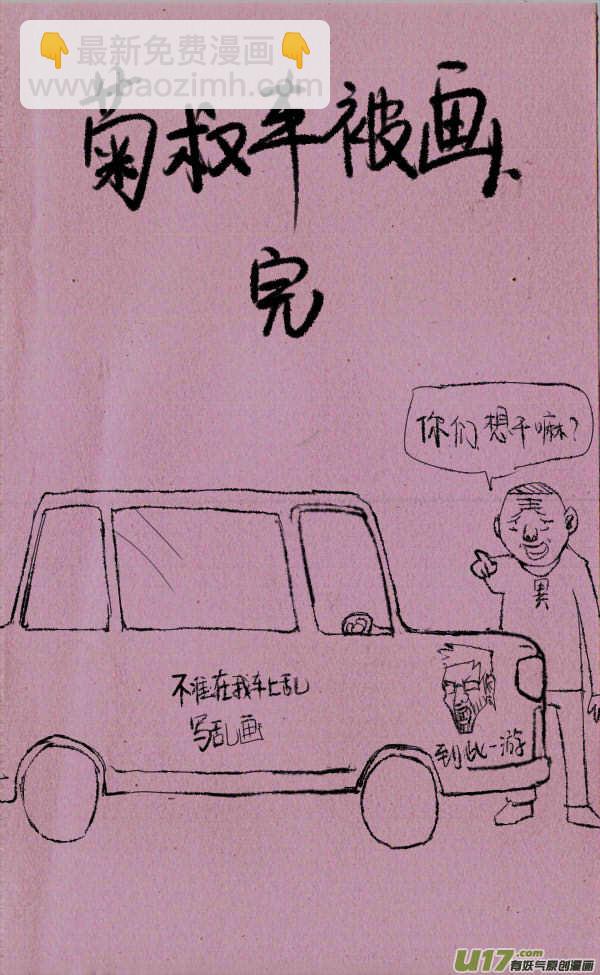 👇最新免费漫画👇
www.baozimh.com
菊救车被画、
完
你们想干嘛?
男
不准在我车上乱
写乱画
到此一游
U17.com
有妖气原创漫画